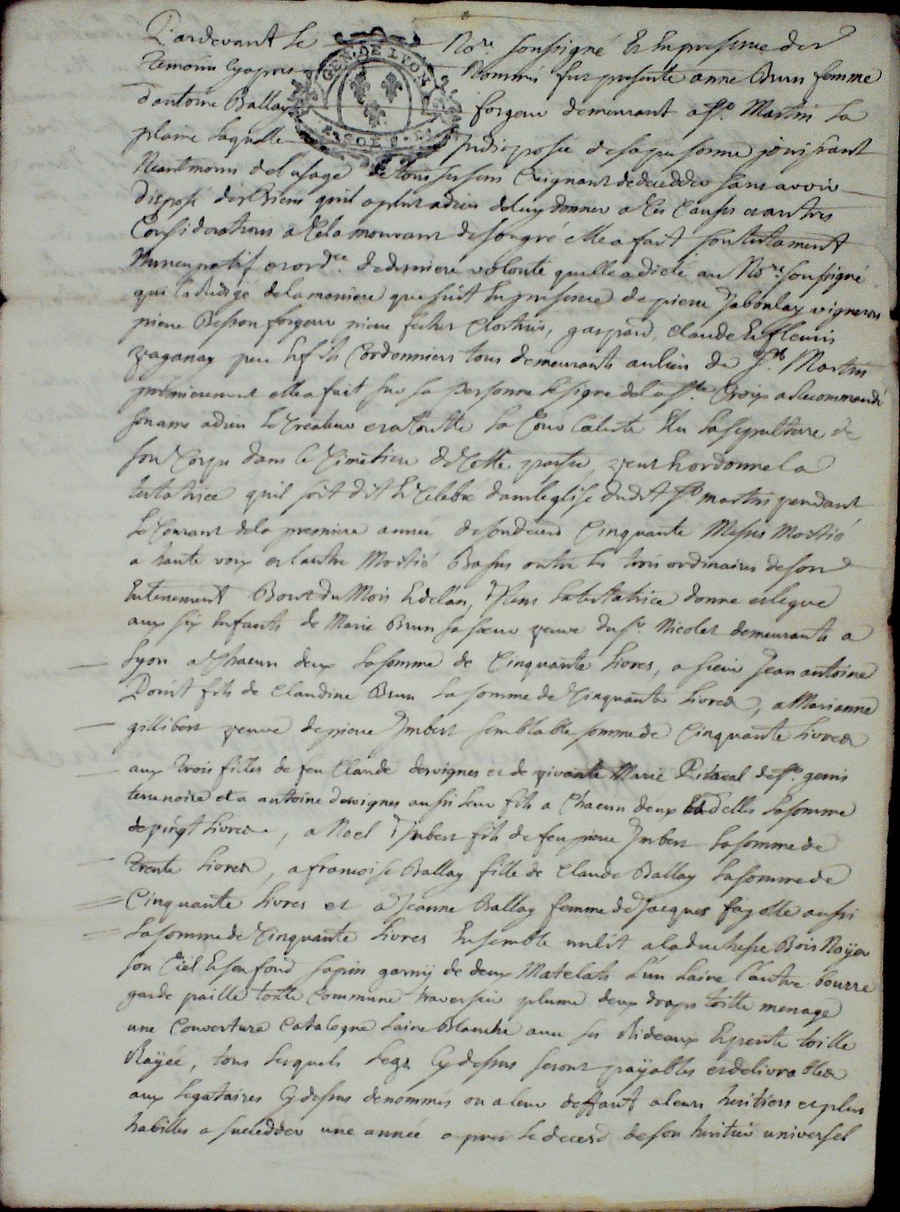 Pardevant le No.re soussigné Et En presence des
Temoins Cyapres Nommés fut presente anne Brun femme
d'antoine Ballay forgeur demeurant a St. Martin La
plaine Laquelle Indisposée de sa personne jouissant
Neantmoins de l'usage de tous ses sens Craignant de deceder sans avoir
disposé des Biens quil a plut a dieu de luy donner a Ces Causes et autres
Considerations a Cela mouvant de son gré elle a fait son testament
Nuncupatif et ord.re de derniere volonté quelle a dicté au No.re soussigné
qui l'a Redigé de la maniere que suit En presence de pierre Jaboulay vigneron
pierre Besson forgeur pierre Clostrus, gaspard, Claude Et fleuris
paganay pere Et fils Cordonniers tous demeurants au lieu de St. Martin
premierement elle a fait sur sa personne le signe de la Ste. Croix a Recommandé
son ame a dieu Le Createur et a toutte La Cour Celeste Elu La sepulture de
son Corps dans le Cimetiere de Cette paroisse, veut Et ordonne La
testatrice quil soit dit Et Celebré dans l'eglise dudit St. martin pendant
Le Courant de la premiere année de son deces Cinquante Messes Moitié
a haute voix et l'autre Moitié Basses outre les trois ordinaires de son
Enterrement Bout du Mois Et de l'an, Plus La testatrice donne et legue
aux six Enfants de Marie Brun sa soeur veuve du Sr. Nicolet demeurants a
Lyon a Chacun deux La somme de Cinquante Livres, a sieur Jean antoine
Point fils de Claudine Brun La somme de Cinquante Livres, a Marianne
gillibert veuve de pierre Imbert semblable somme de Cinquante Livres
aux trois filles de feu Claude desvignes et de vivante Marie Pitaval de St. genis
terrenoire et a antoine desvignes aussi leur fils a Chacun deux Et delles La somme
de vingt Livres, a Noel Imbert fils de feu pierre Imbert La somme de
trente Livres, a francoise Ballay fille de Claude Ballay La somme de
Cinquante Livres et a Jeanne Ballay femme de Jacques fayolle aussi
La somme de Cinquante Livres Ensemble un lit a la duchesse Bois Noyer
son Ciel Et son fond sapin garny de deux Matelats L'un Laine L'autre bourre
garde paille toille Commune traversier plume deux draps toille menage
une Couverture Catalogne Laine Blanche avec ses Rideaux Et pente toille
Rayée, tous Lesquels Legs Cy dessus seront payables et delivrables
aux Legataires Cy dessus denommés ou a leur deffaut a leurs heritiers et plus
habilles a succeder une année apres Le deces de son heritier universel
GEN. DE LYON